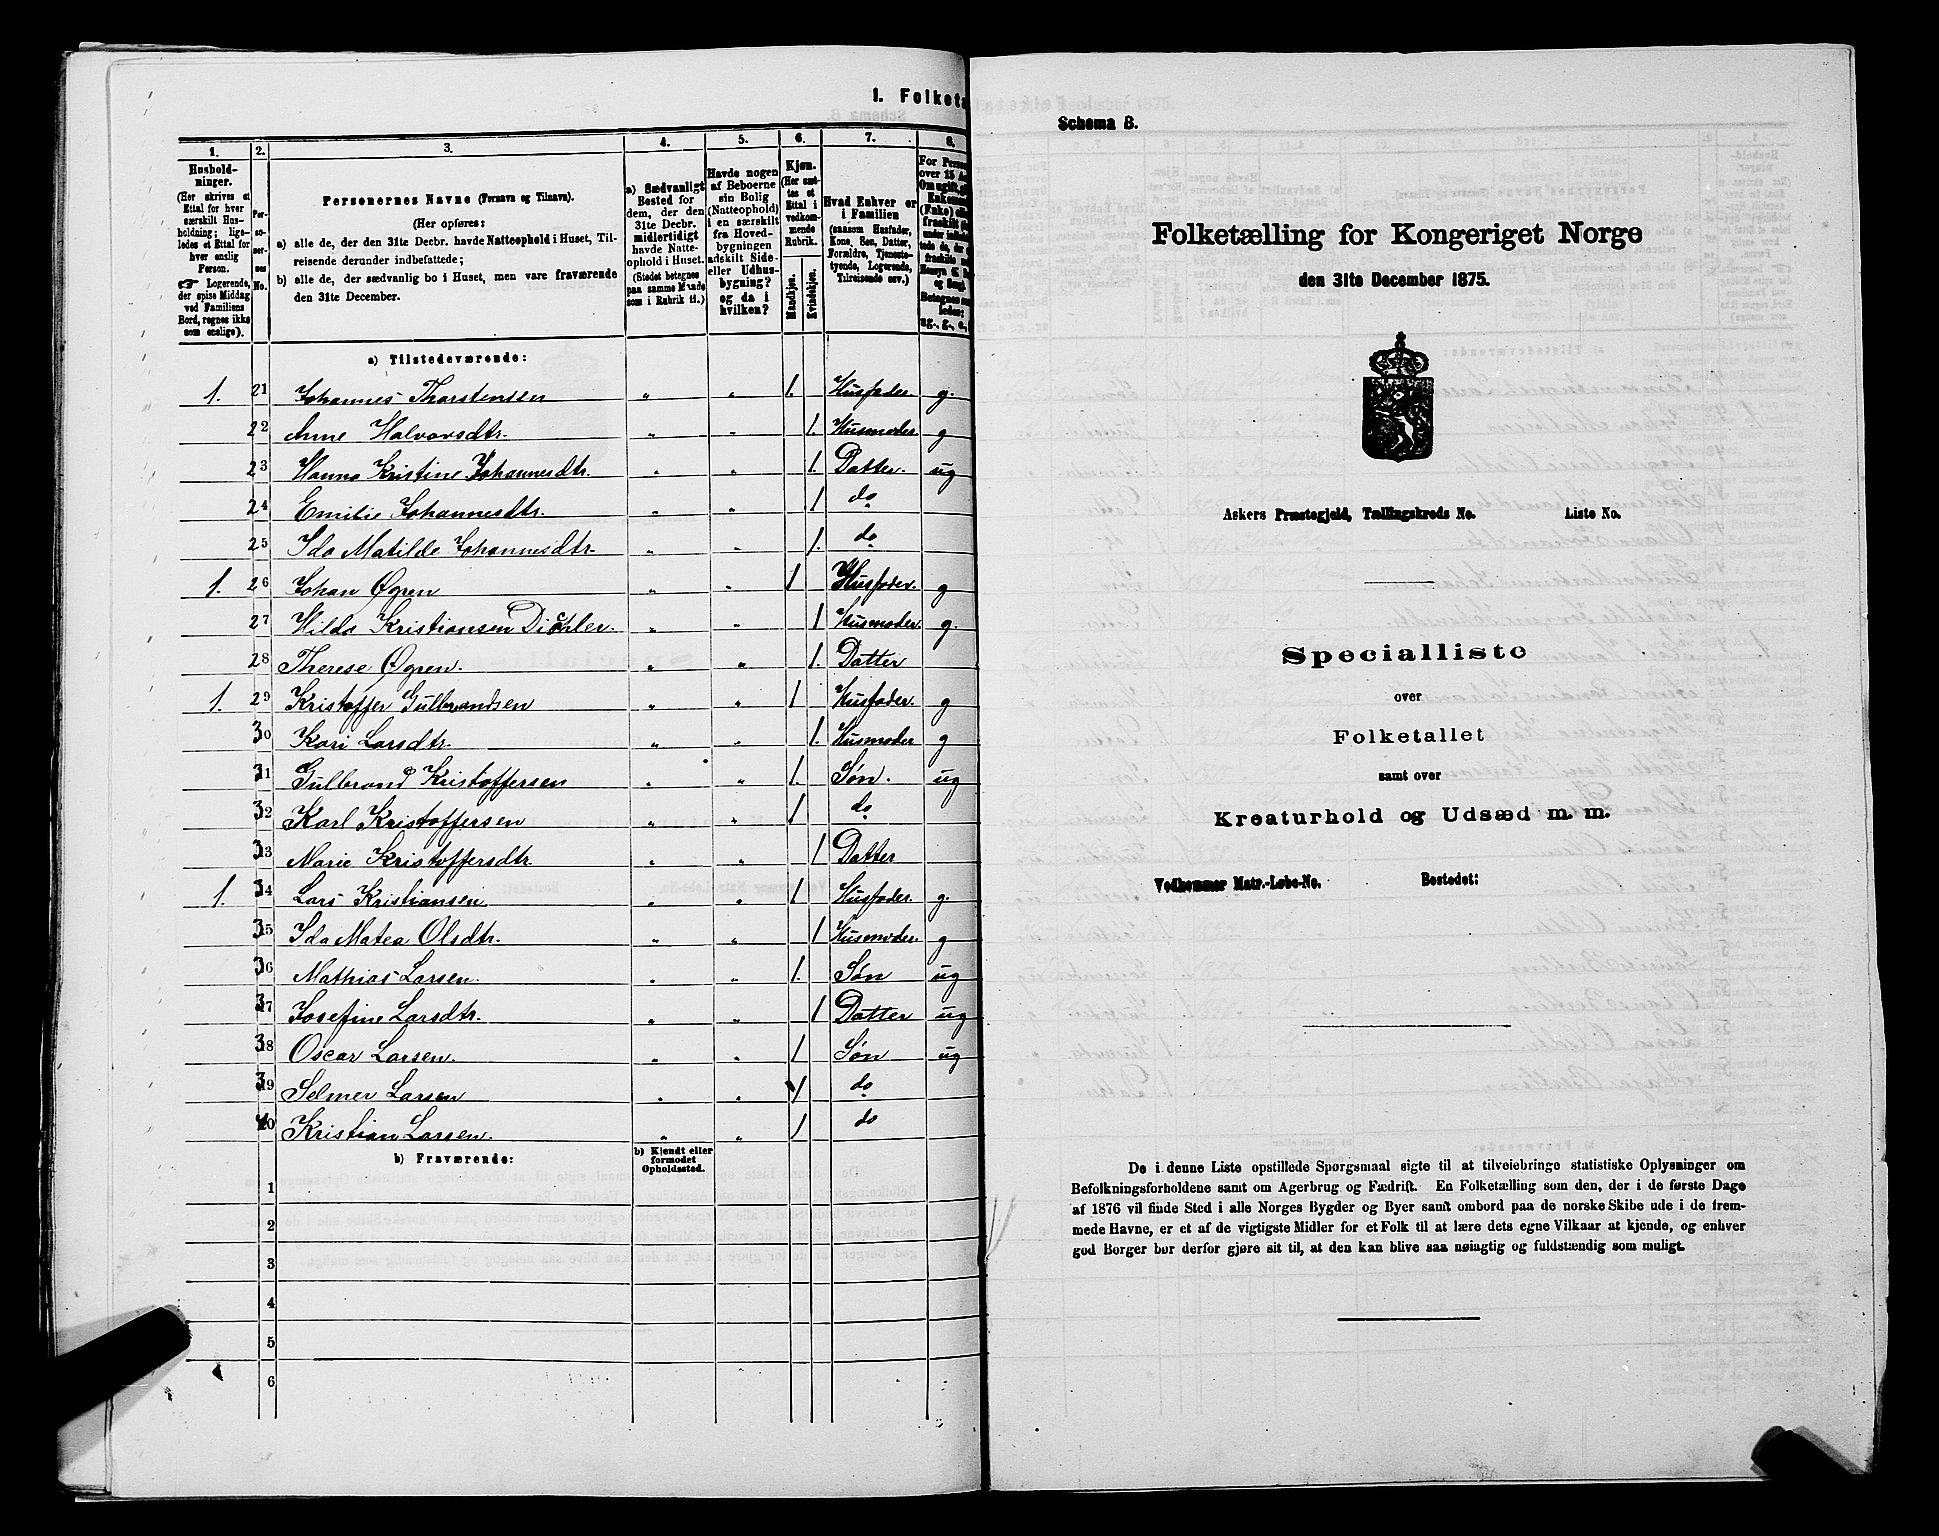 1. Folketa
1. 2. 3. 4. 5. 6. 7. 8.
Hushold-
ninger.
(Her skrives et
Ettal for hver
særskilt Hus-
holdning; lige-
ledes et Ettal for
hver enslig
Person.
☞ Logerende,
der spise Middag
ved Familiens
Bord, regnes ikke
som enslige).
Per-
so-
ner-
nes
No.
Personernes Navne (Fornavn og Tilnavn).
(Her opføres:
a) alle de, der den 31te Decbr. havde Natteophold i Huset, Til-
reisende derunder indbefattede;
b) alle de, der sædvanlig bo i Huset, men vare fraværende
den 31te December.
a) Sædvanligt
Bosted for
dem, der den
31te Decbr.
midlertidigt
havde Natte-
ophold i Huset.
(Stedet betegnes
paa samme Maade
som i Rubrik 11.)
Havde nogen
af Beboerne
sin Bolig
(Natteophold)
i en særskilt
fra Hoved-
bygningen
adskilt Side-
eller Udhus-
bygning?
og da i
hvilken?
Kjøn.
(Her sæt-
tes et
Ettal i
vedkom-
mende
Rubrik.
Mandkjøn.
Kvindekjøn.
Hvad Enhver er
i Familien
(saasom Husfader,
Kone, Søn, Datter,
Forældre, Tjeneste-
tyende, Logerende,
Tilreisende osv.)
For Person
over 15 A
Om ugift,
ug., g., e.,
a) Tilstedeværende:
1. 21 Johannes Thorstenssen " " 1. Husfader g.
22 Anne Halvorsdtr. " " 1. Husmoder g
23 Hanna Kristine Johannesdtr. " " 1. Datter. ug
24 Emilie Johannesdtr. " " 1 do
25 Ida Matilde Johannesdtr. " " 1. do
1. 26 Johan Øgren " " 1 Husfader. g
27 Hilda Kristiansen Diöhler. " " 1 Husmoder. g.
28 Therese Øgren. " " 1. Datter
1. 29 Kristoffer Gulbrandsen " " 1 Husfader. g
30 Kari Larsdtr. " " 1. Husmoder g
31 Gulbrand Kristoffersen " " 1. Søn. ug
32 Karl Kristoffersen " " 1 do
33 Marie Kristoffersdtr. " " 1 Datter
1. 34 Lars Kristiansen " " 1 Husfader. g.
35 Ida Matea Olsdtr. " " 1 Husmoder. g
36 Mathias Larsen. " " 1. Søn ug
37 Josefine Larsdtr. " " 1 Datter ug
38 Oscar Larsen. " " 1 Søn ug
39 Selmer Larsen " " 1 do
40 Kristian Larsen. " " 1 do
b) Fraværende:
b) Kjendt eller
formodet
Opholdssted.
1
2
3
4
5
6
Schema 8.
Folketælling for Kongeriget Norge
den 31te December 1875.
Askers Præstegjeld, Tællingskreds No. Liste No.
Specialliste
over
Folketallet
samt over
Kreaturhold og Udsæd m. m.
Vedkommer Matr.-Løbe-No. Bostedet:
De i denne Liste opstillede Spørgsmaal sigte til at tilveiebringe statistiske Oplysninger om
Befolkningsforholdene samt om Agerbrug og Fædrift. En Folketælling som den, der i de første Dage
af 1876 vil finde Sted i alle Norges Bygder og Byer samt ombord paa de norske Skibe ude i de frem-
mede Havne, er et af de vigtigste Midler for et Folk til at lære dets egne Vilkaar at kjende, og enhver
god Borger bør derfor gjøre sit til, at den kan blive saa nøiagtig og fuldstændig som muligt.